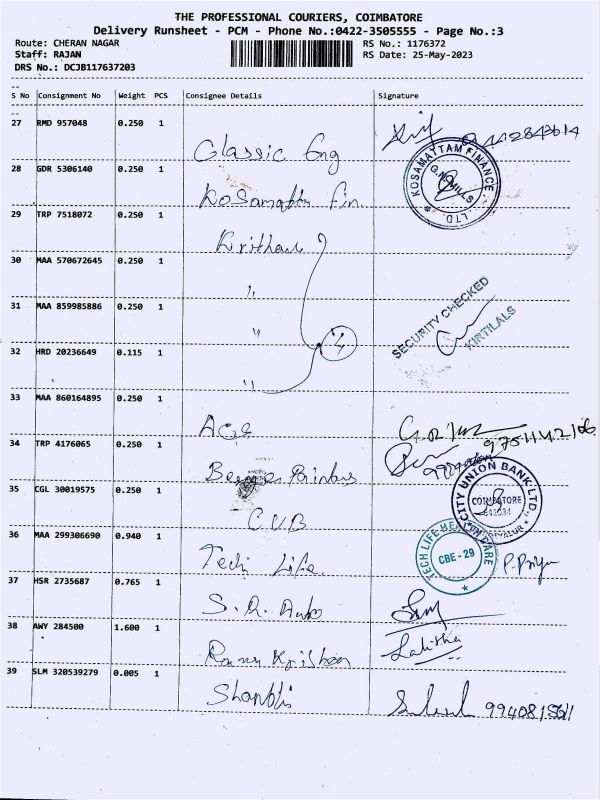 THE PROFESSIONAL COURIERS, COIMBATORE
Delivery Runsheet - PCM - Phone No.:0422-3505555 - Page No.:3
Route: CHERAN NAGAR
RS No.: 1176372
Staff: RAJAN
RS Date: 25-May-2023
DRS No.: DCJB117637203
S No Consignment No Weight PCS Consignee Details Signature
27 RMD 957048 0.250 1
Classic Eng
28 GDR 5306140 0.250 1
KOSAMATTAM FINANCE LTD.
G.N. MILLS
Kosamattam Fin
29 TRP 7518072 0.250 1
30 MAA 570672645 0.250 1
"
31 MAA 859985886 0.250 1
"
SECURITY CHECKED
KIRTILALS
4
32 HRD 20236649 0.115 1
"
33 MAA 860164895 0.250 1
34 TRP 4176065 0.250 1
Berger Paints
35 CGL 30019575 0.250 1
CITY UNION BANK LTD.,
COIMBATORE
C.U.B
36 MAA 299306690 0.940 1
TECH LIFE HEALTH CARE
CBE-29
Tech Life
P. Priya
37 HSR 2735687 0.765 1
S.R. Auto
38 AWY 284500 1.600 1
Lalitha
39 SLM 320539279 0.005 1
Shanthi